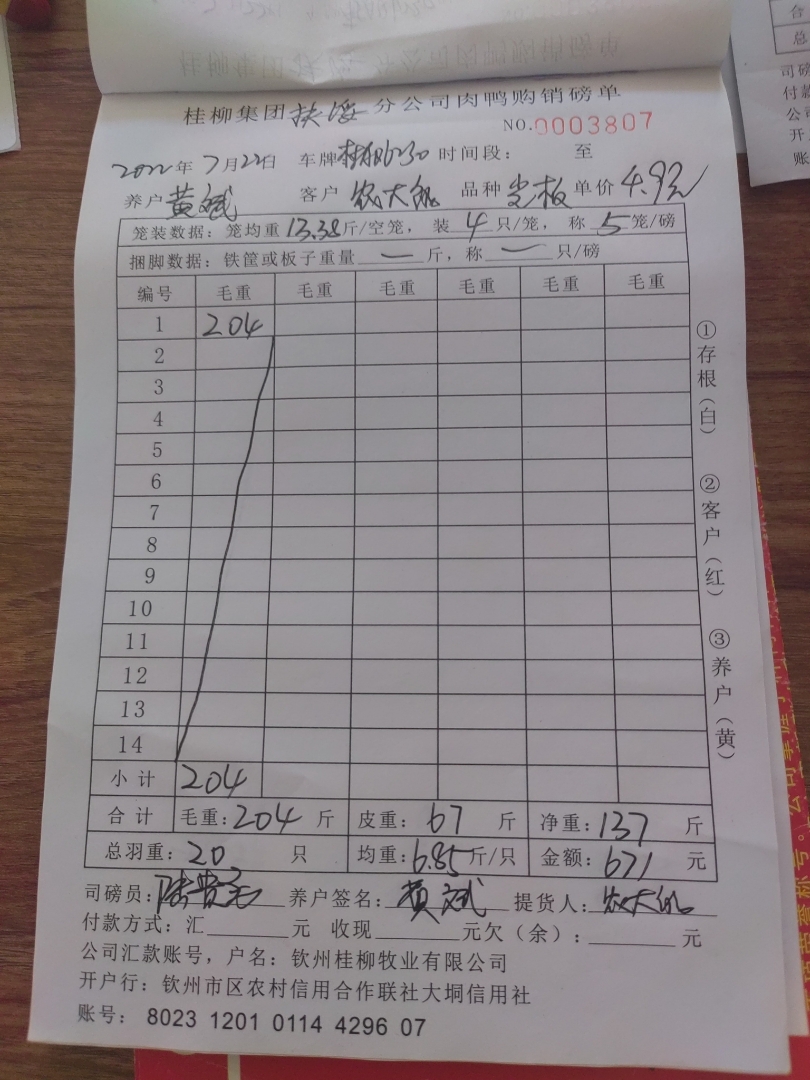 桂柳集团扶绥分公司肉鸭购销磅单
NO.0003807
2022年7月22日 车牌桂 6230 时间段： 至
养户黄斌 客户农大 品种光板 单价4.9元
笼装数据：笼均重13.38斤/空笼，装4只/笼，称5笼/磅
捆脚数据：铁筐或板子重量一斤，称一只/磅
编号 毛重 毛重 毛重 毛重 毛重 毛重
1 204
2
3
4
5
6
7
8
9
10
11
12
13
14
小计 204
合计 毛重：204斤 皮重：67斤 净重：137斤
总羽重：20只 均重：6.85斤/只 金额：671元
司磅员：陆 养户签名：黄斌 提货人：农大
付款方式：汇____元 收现____元欠（余）：____元
公司汇款账号，户名：钦州桂柳牧业有限公司
开户行：钦州市区农村信用合作联社大垌信用社
账号： 8023 1201 0114 4296 07
①存根（白）
②客户（红）
③养户（黄）